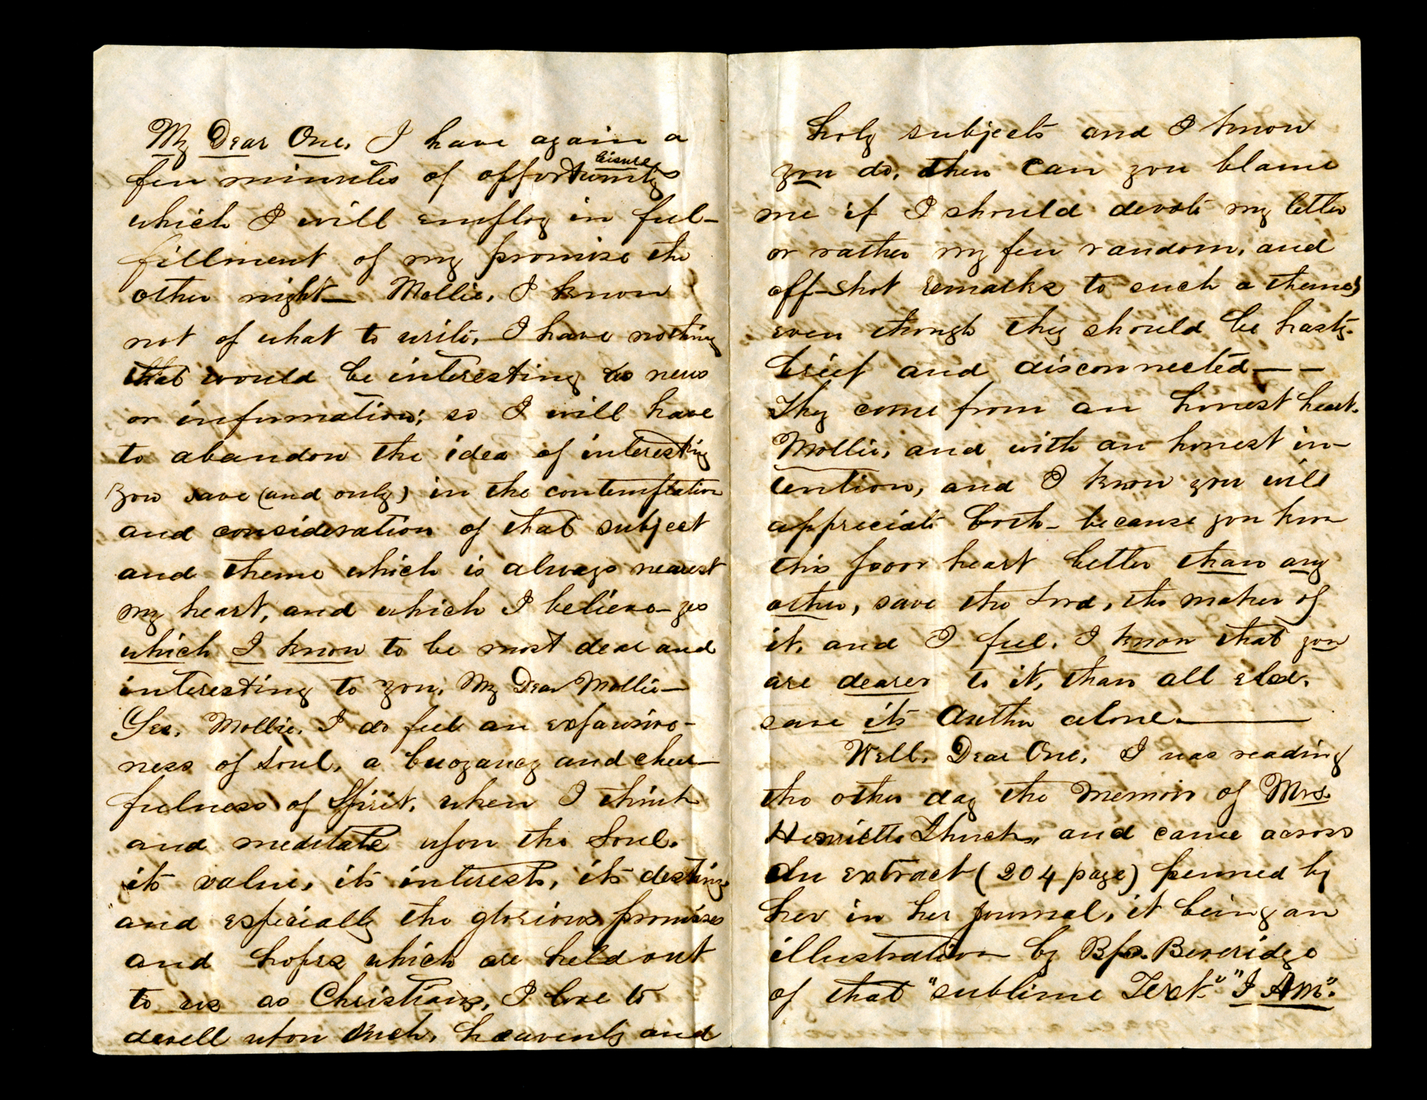 My Dear One, I have again a
leisure
few minutes of opportunity
which I will employ in ful-
fillment of my promise the
other night— Mollie, I know
not of what to write, I have nothing
that would be interesting as news
or information; so I will have
to abandon the idea of interesting
you save (and only) in the contemplation
and consideration of that subject
and theme which is always nearest
my heart, and which I believe— yes
which I know to be most dear and
interesting to you, My Dear Mollie—
Yes, Mollie, I do feel an expansive-
ness of soul, a buoyancy and cheer-
fulness of Spirit, when I think
and meditate upon the Soul,
its value, its interests, its destiny
and especially the glorious promises
and hopes which are held out
to us as Christians, I love to
dwell upon such, heavenly and
holy subjects and I know
you do, then can you blame
me if I should devote my letter
or rather my few random, and
off-shot remarks to such a theme,
even though they should be hasty-
brief and disconnected— —
They come from an honest heart,
Mollie, and with an honest in-
tention, and I know you will
appreciate both— because you know
this poor heart better than any
other, save the Lord, the maker of
it, and I feel, I know that you
are dearer to it, than all else,
save its Author alone.—
Well, Dear One, I was reading
the other day the Memoir of Mrs.
Henrietta Shuck, and came across
an extract (204 page) penned by
her in her journal, it being an
illustration by Bp. Beveridge
of that "sublime Text." "I Am".